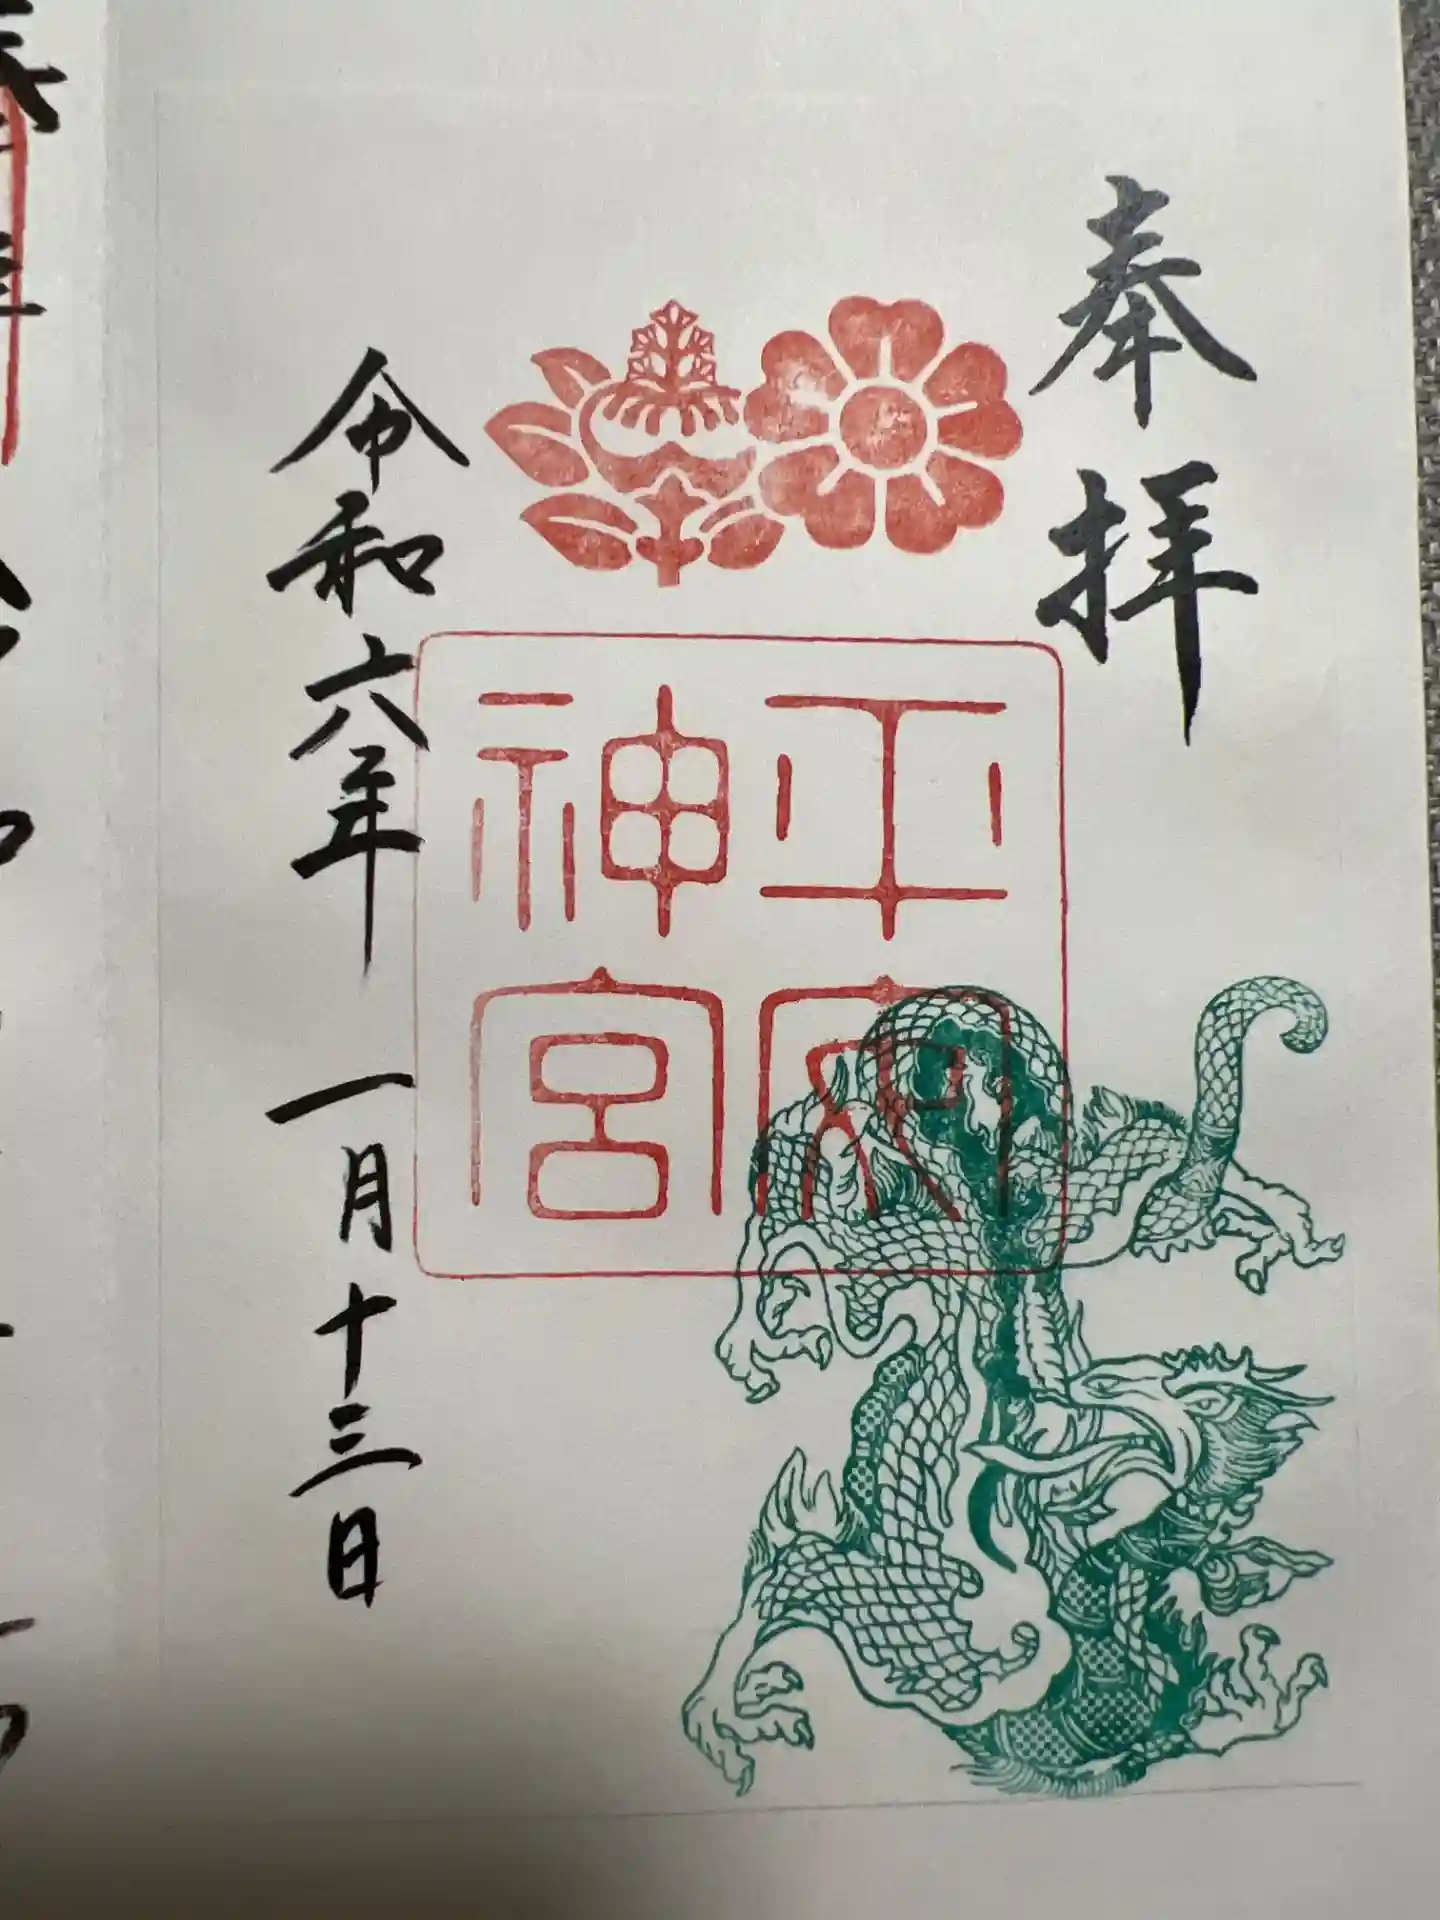 奉拝
平安
神宮
令和六年 一月十三日